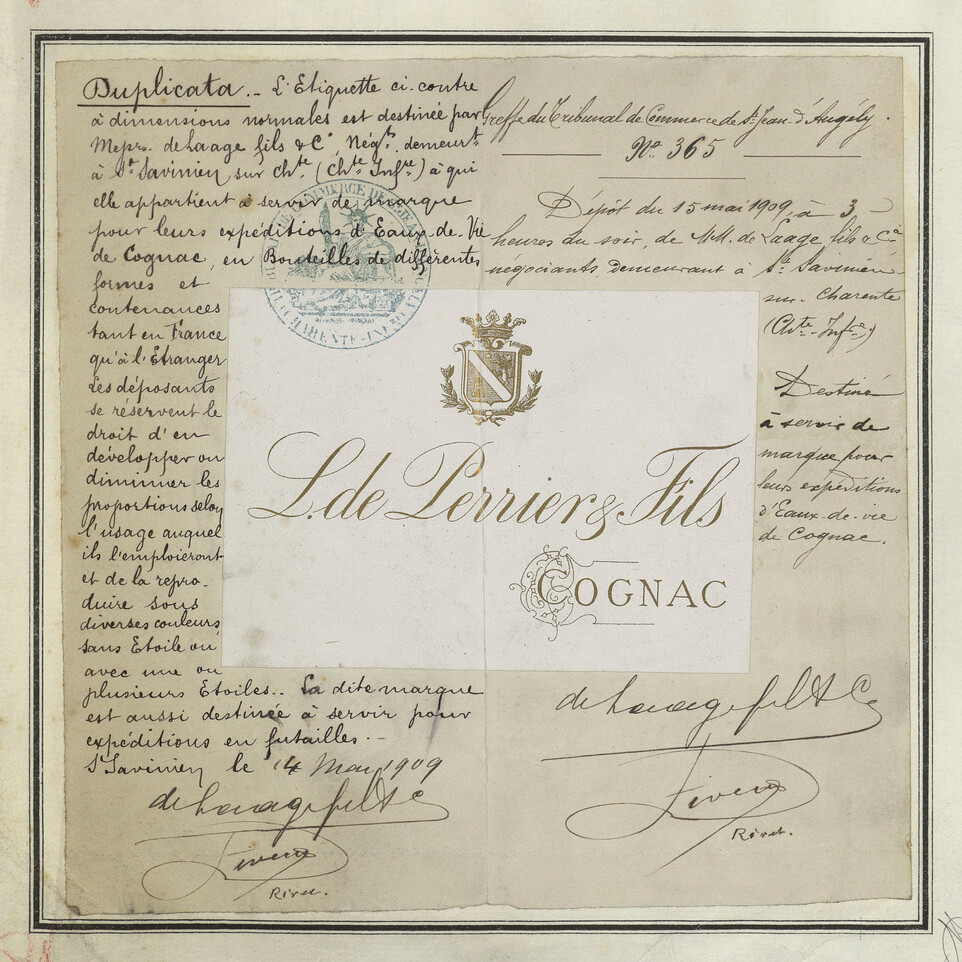 Duplicata.- L'Etiquette ci-contre
à dimensions normales est destinée par
de Laage fils & Cº, Négts. demeurt
à St Savinien sur Chte (Chte Infre) à qui
elle appartient à servir de marque
pour leurs expéditions d'Eaux-de-Vie
de Cognac, en Bouteilles de différentes
formes et
contenances
tant en France
qu'à l'Etranger
Les déposants
se réservent le
droit d'en
développer ou
diminuer les
proportions selon
l'usage auquel
ils l'emploieront
et de la repro-
duire sous
diverses couleurs,
sans Etoile ou
avec une ou
plusieurs Etoiles.. La dite marque
est aussi destinée à servir pour
expéditions en futailles.-
St Savinien le 14 Mai 1909
de Laage fils & Cº
Rivet.
Greffe du Tribunal de Commerce de St Jean d'Angély.
Nº 365
Dépôt du 15 mai 1909, à 3
heures du soir, de M.M. de Laage fils & Cie
négociants demeurant à St Savinien
sur Charente
(Chte Infre)
Destiné
à servir de
marque pour
leurs expéditions
d'Eaux-de-vie
de Cognac.
L. de Perrier & Fils
COGNAC
de Laage fils & Cº
Rivet.